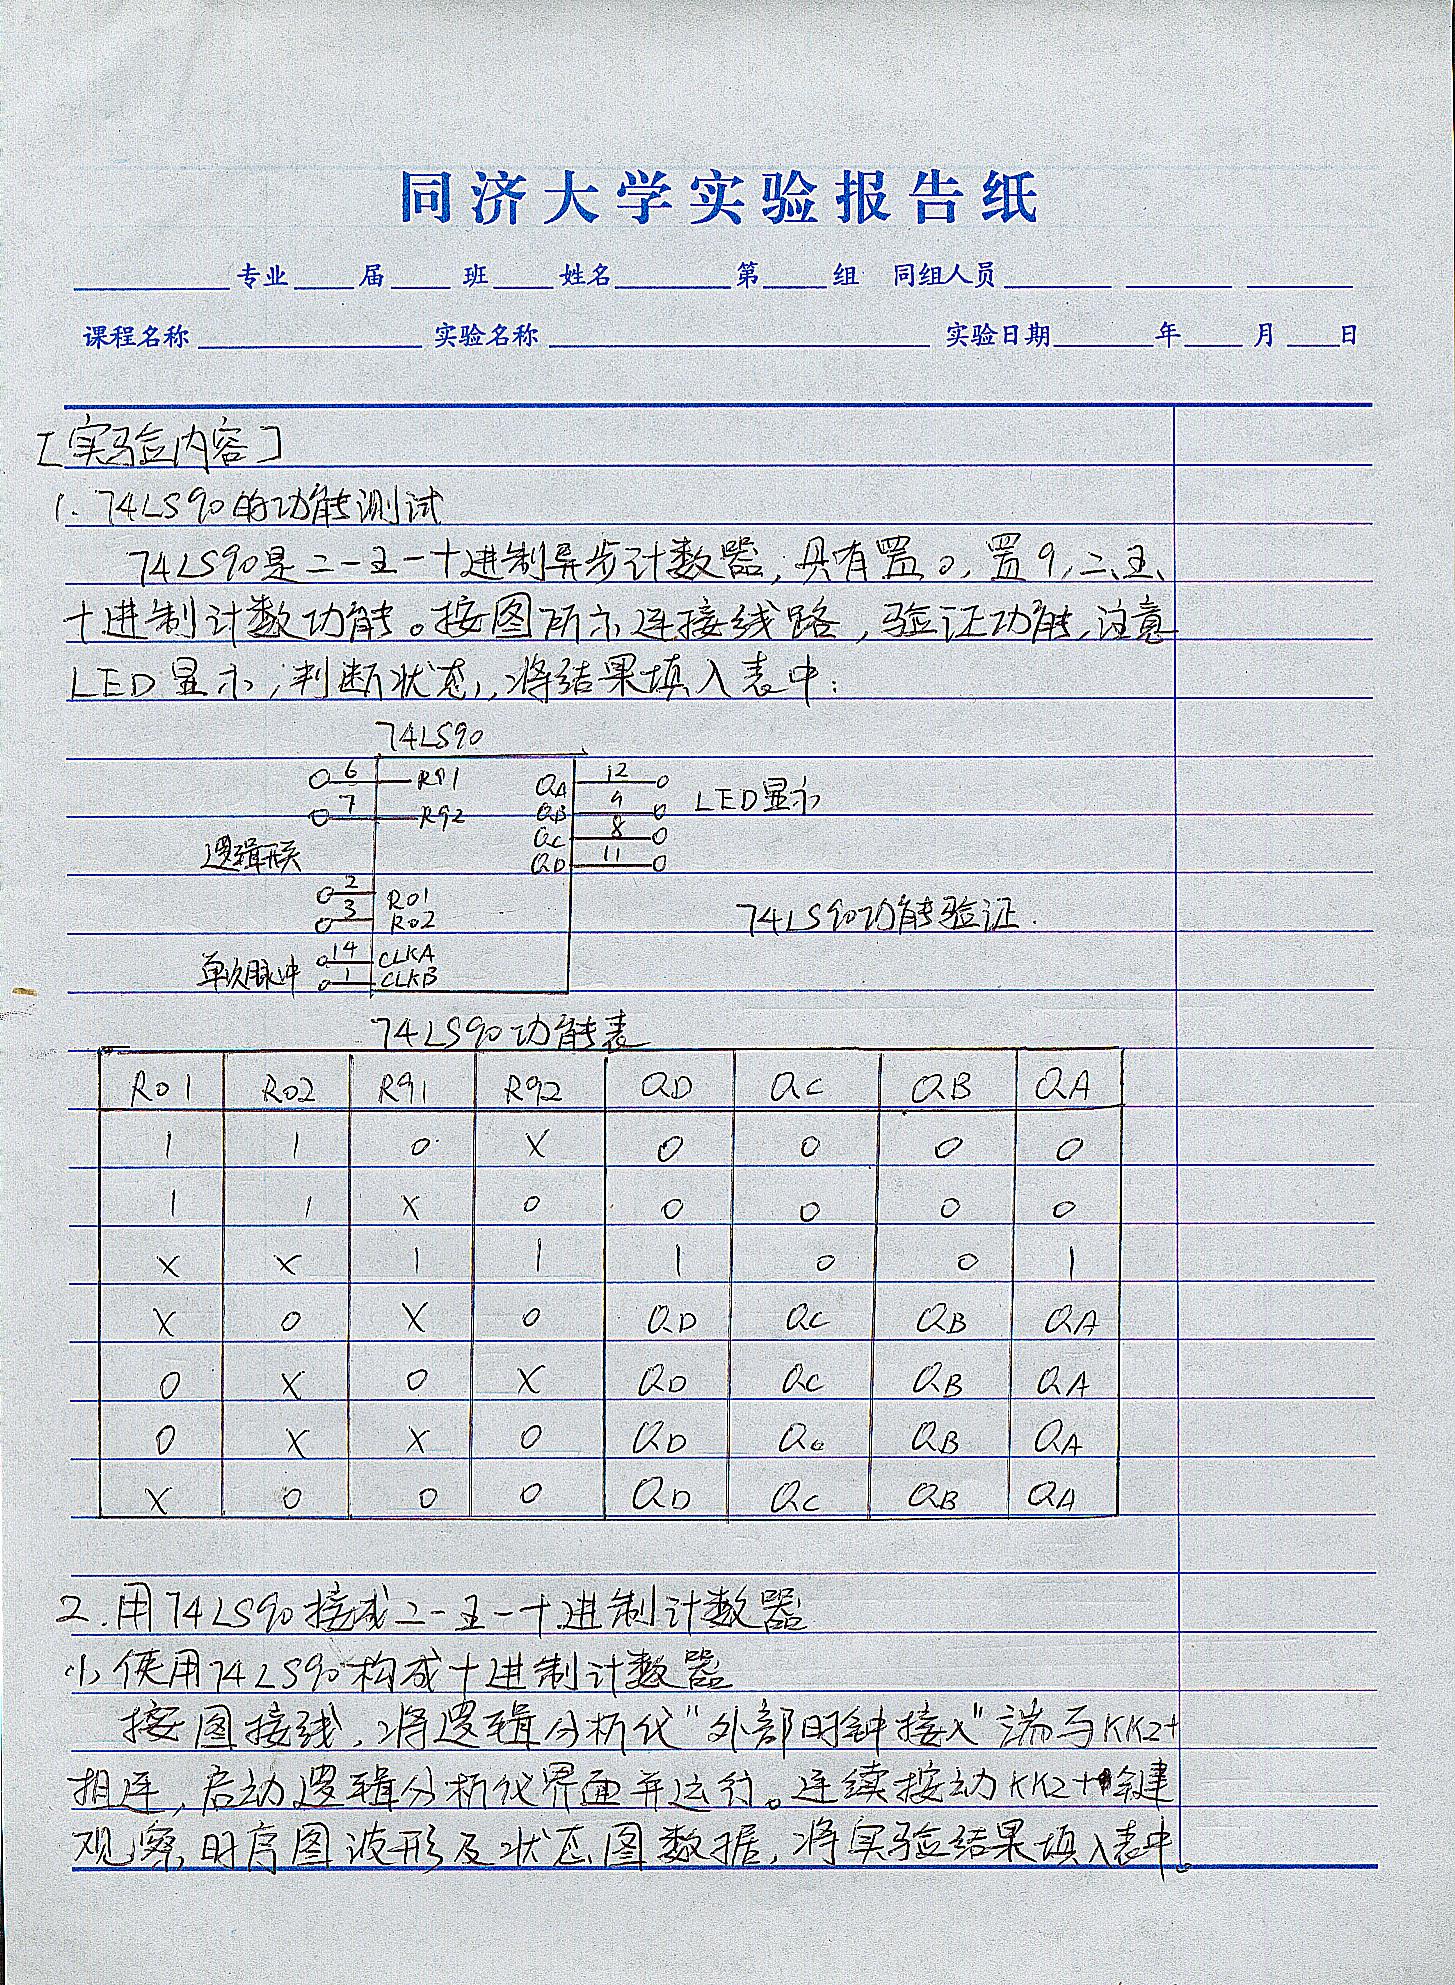 同济大学实验报告纸
专业 届 班 姓名 第 组 同组人员
课程名称 实验名称 实验日期 年 月 日
[实验内容]
1. 74LS90的功能测试
74LS90是二一五一十进制异步计数器，具有置0，置9，二、五、
十进制计数功能。按图所示连接线路，验证功能，注意
LED显示，判断状态，将结果填入表中：
74LS90
6 R91 QA 12
7 R92 QB 9 LED显示
QC 8
逻辑开关 QD 11
2 R01
3 R02 74LS90功能验证.
14 CLKA
单次脉冲 1 CLKB
74LS90功能表
R01 R02 R91 R92 QD QC QB QA
1 1 0 X 0 0 0 0
1 1 X 0 0 0 0 0
X X 1 1 1 0 0 1
X 0 X 0 QD QC QB QA
0 X 0 X QD QC QB QA
0 X X 0 QD QC QB QA
X 0 0 0 QD QC QB QA
2. 用74LS90接成二一五一十进制计数器
(1) 使用74LS90构成十进制计数器
按图接线，将逻辑分析仪“外部时钟接入”端与KK2+
相连，启动逻辑分析仪界面并运行。连续按动KK2+键
观察时序图波形及状态图数据，将实验结果填入表中。